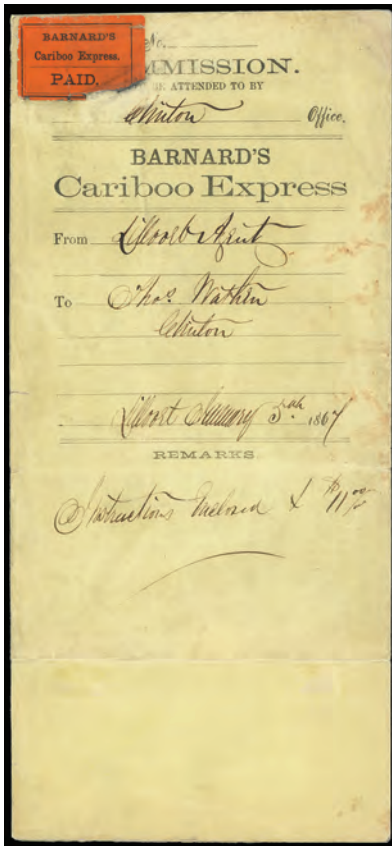 BARNARD'S
Cariboo Express.
PAID.
No.
MMISSION.
BE ATTENDED TO BY
Clinton Office.
BARNARD'S
Cariboo Express
From Lillooet Agent
To Thos. Watkin
Clinton
January 5th 1867
REMARKS
Instructions Enclosed &